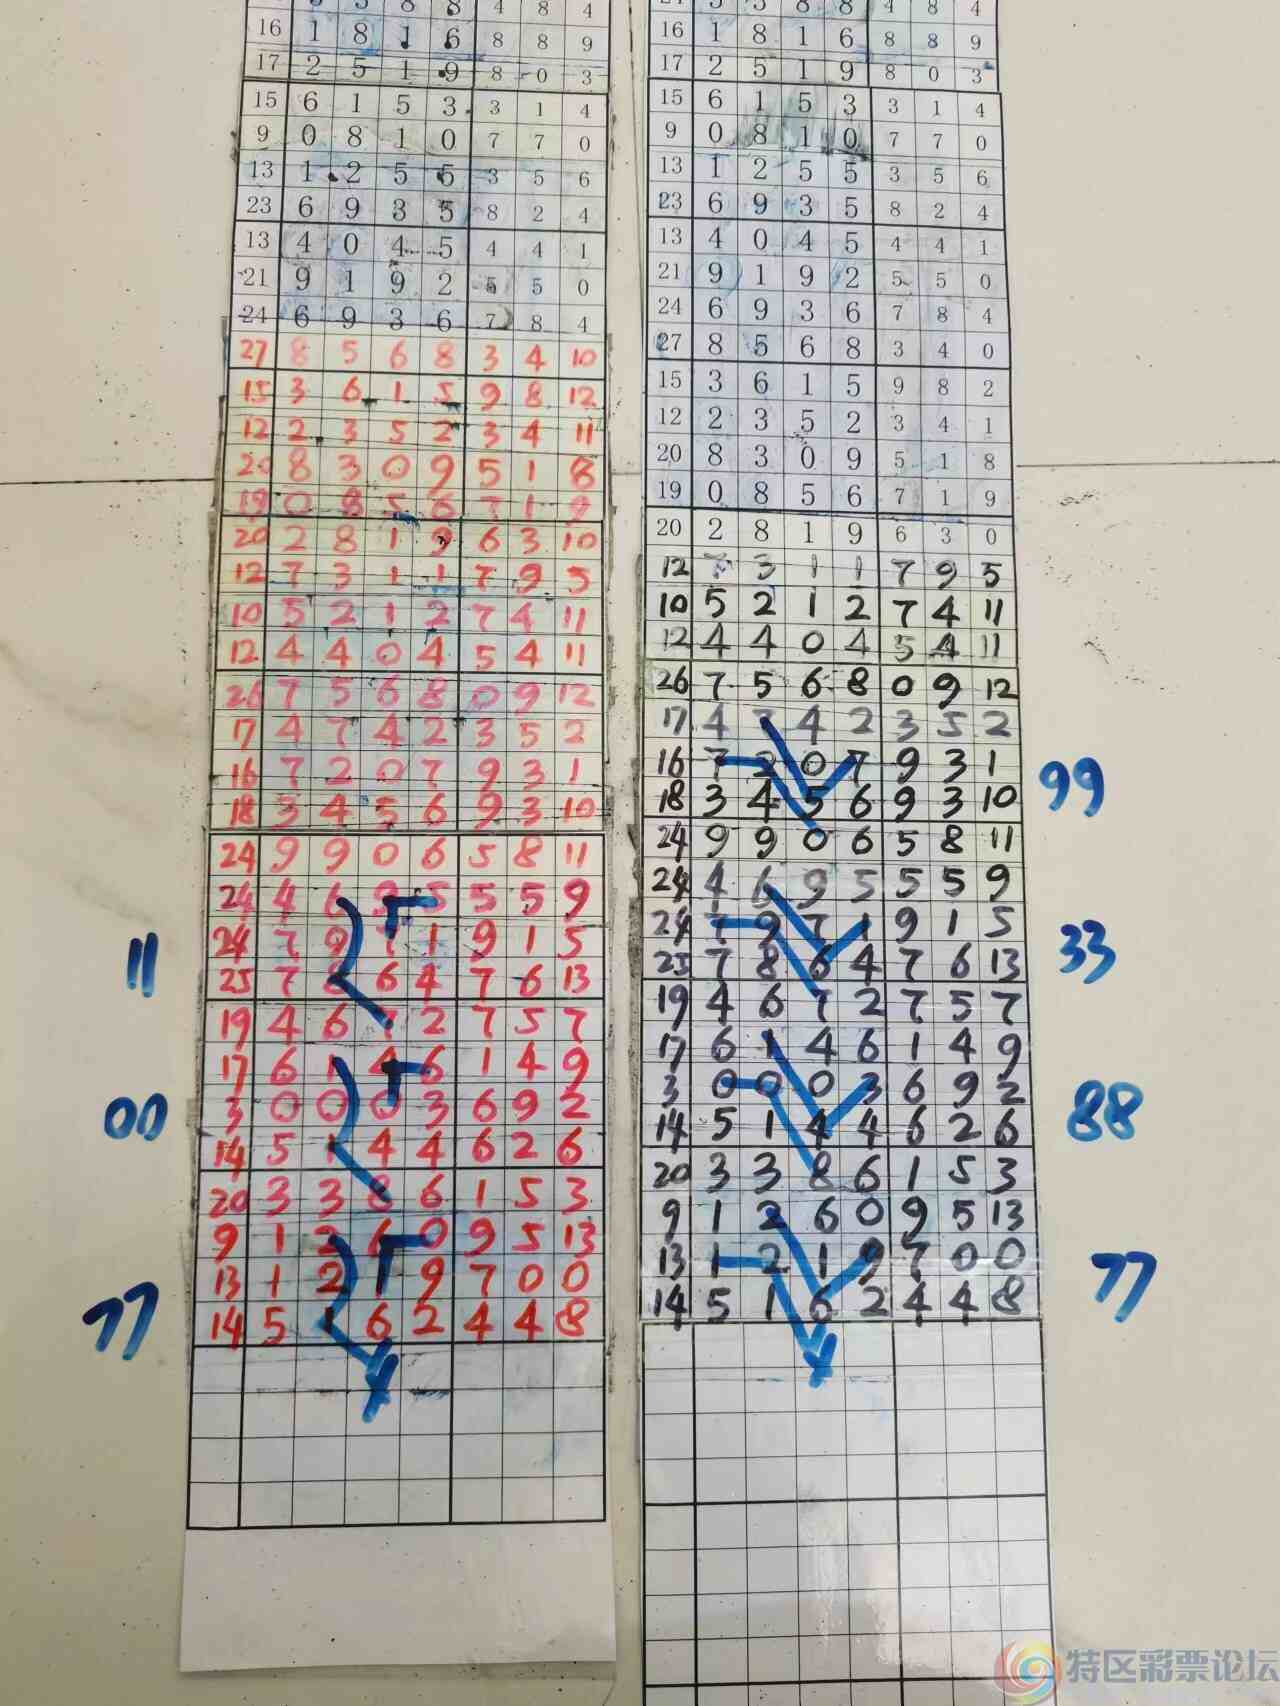 8 8 4 8 4 8 8 4 8 4
16 1 8 1 6 8 8 9 16 1 8 1 6 8 8 9
17 2 5 1 9 8 0 3 17 2 5 1 9 8 0 3
15 6 1 5 3 3 1 4 15 6 1 5 3 3 1 4
9 0 8 1 0 7 7 0 9 0 8 1 0 7 7 0
13 1 2 5 5 3 5 6 13 1 2 5 5 3 5 6
23 6 9 3 5 8 2 4 23 6 9 3 5 8 2 4
13 4 0 4 5 4 4 1 13 4 0 4 5 4 4 1
21 9 1 9 2 5 5 0 21 9 1 9 2 5 5 0
24 6 9 3 6 7 8 4 24 6 9 3 6 7 8 4
27 8 5 6 8 3 4 10 27 8 5 6 8 3 4 0
15 3 6 1 5 9 8 12 15 3 6 1 5 9 8 2
12 2 3 5 2 3 4 11 12 2 3 5 2 3 4 1
20 8 3 0 9 5 1 8 20 8 3 0 9 5 1 8
19 0 8 5 6 7 1 9 19 0 8 5 6 7 1 9
20 2 8 1 9 6 3 10 20 2 8 1 9 6 3 0
12 7 3 1 1 7 9 5 12 7 3 1 1 7 9 5
10 5 2 1 2 7 4 11 10 5 2 1 2 7 4 11
12 4 4 0 4 5 4 11 12 4 4 0 4 5 4 11
26 7 5 6 8 0 9 12 26 7 5 6 8 0 9 12
17 4 7 4 2 3 5 2 17 4 7 4 2 3 5 2
16 7 2 0 7 9 3 1 16 7 2 0 7 9 3 1 99
18 3 4 5 6 9 3 10 18 3 4 5 6 9 3 10
24 9 9 0 6 5 8 11 24 9 9 0 6 5 8 11
24 4 6 9 5 5 5 9 24 4 6 9 5 5 5 9
11 24 7 9 7 1 9 1 5 24 7 9 7 1 9 1 5 33
25 7 8 6 4 7 6 13 25 7 8 6 4 7 6 13
19 4 6 7 2 7 5 7 19 4 6 7 2 7 5 7
17 6 1 4 6 1 4 9 17 6 1 4 6 1 4 9
00 3 0 0 0 3 6 9 2 3 0 0 0 3 6 9 2 88
14 5 1 4 4 6 2 6 14 5 1 4 4 6 2 6
20 3 3 8 6 1 5 3 20 3 3 8 6 1 5 3
9 1 2 6 0 9 5 13 9 1 2 6 0 9 5 13
77 13 1 2 1 9 7 0 0 13 1 2 1 9 7 0 0 77
14 5 1 6 2 4 4 8 14 5 1 6 2 4 4 8
特区彩票论坛